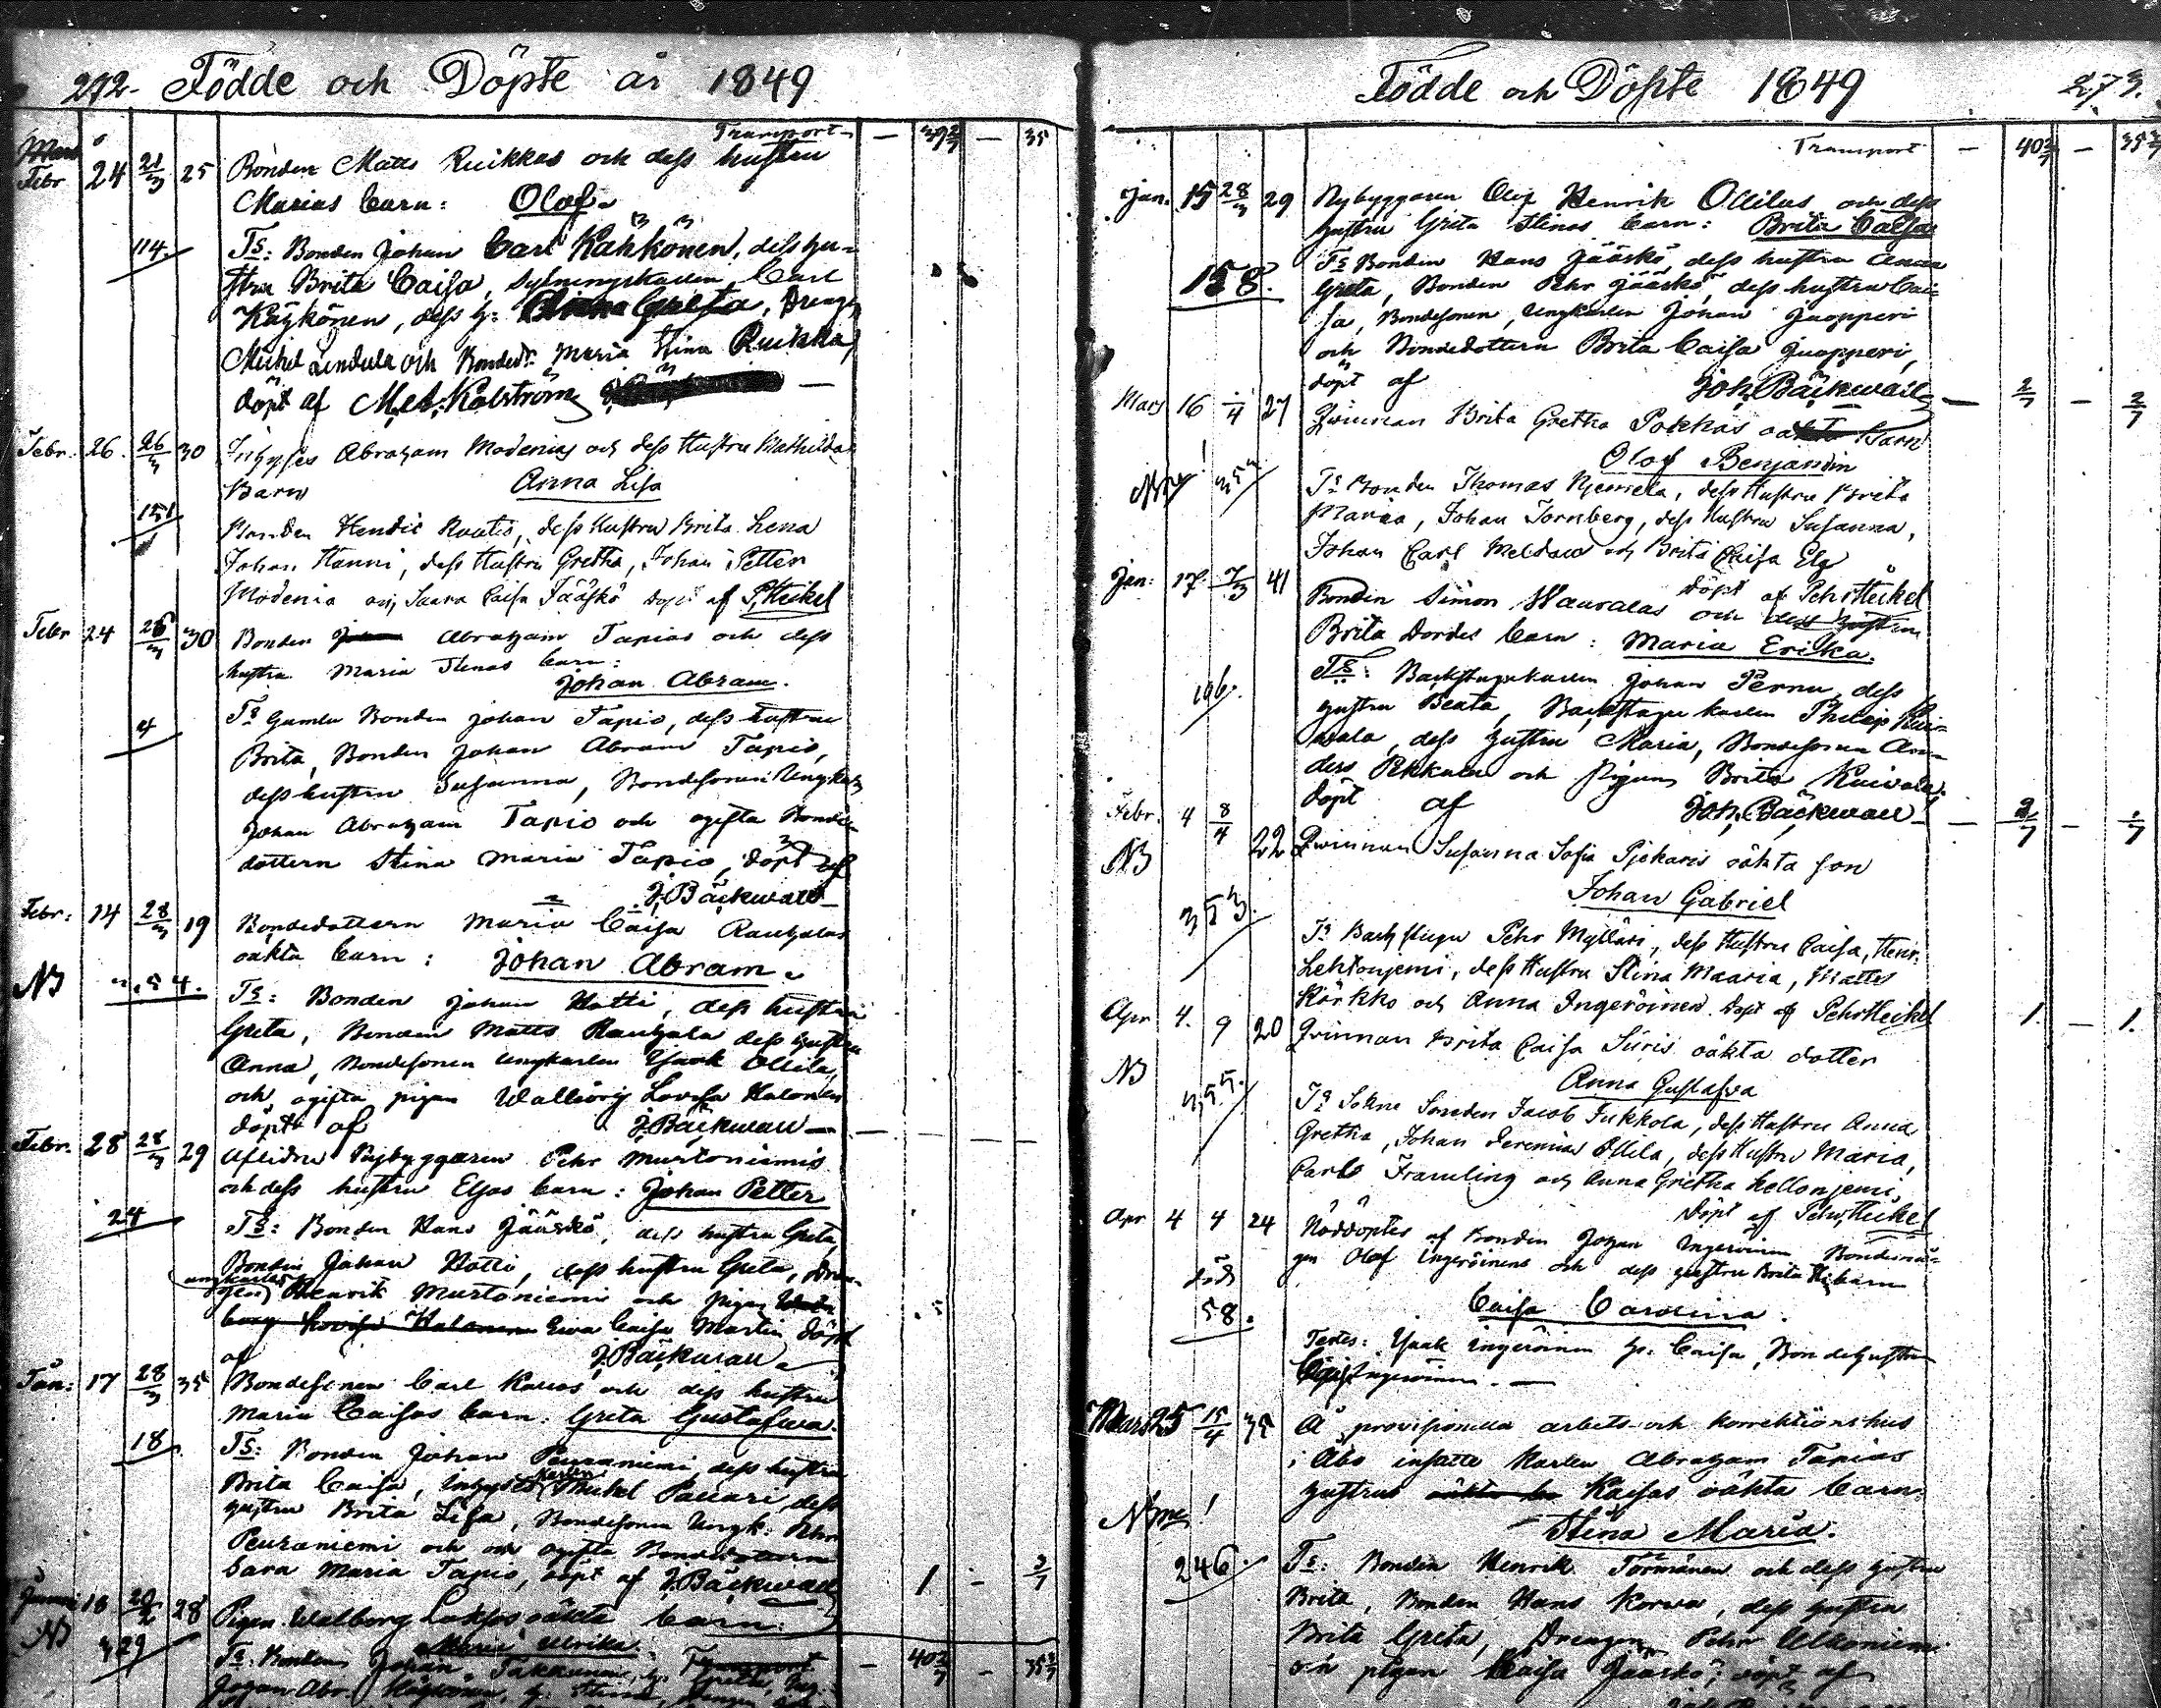 272. Födde och Döpte år 1849
Transport — 39 2/7 — 35
Mars
Febr 24 21/3 25 Bonden Matts Ruikkas och dess hustru
Marias barn: Olof.
114. Ts: Bonden Johan Carl Kähkönen, dess hu-
stru Brita Caisa, Carl
Käyhkönen, dess h: Greta, Dreng
Michel Lindula och Bonded: Maria Stina Ruikka,
döpt af Kolström
Febr. 26. 26/3 30 Inhyses Abraham Modenias och dess Hustru Mathildas
Barn Anna Lisa
151 Bonden Hendic Rautio, dess Hustru Brita Lena
Johan Hanni, dess Hustru Gretha, Johan Petter
Modenia och Saara Caisa Jääskö döpt af P. Heikel
Febr 24 26/3 30 Bonden Abraham Tapios och dess
hustru Maria Stinas barn:
Johan Abram.
4 Ts Gamla Bonden Johan Tapio, dess hustru
Brita, Bonden Johan Abram Tapio,
dess hustru Susanna, Bondesonen Ungkarlen
Johan Abraham Tapio och ogifta Bonde-
dottern Stina Maria Tapio, döpt af
J. Bäckwall
Febr: 14 28/3 19 Bondedottern Maria Caisa Rautjalas
oäkta barn: Johan Abram.
NB 254. Ts: Bonden Johan Hatti, dess hustru
Greta, Bonden Matts Rautjala dess hustru
Anna, Bondesonen Ungkarlen Isaak Ollila,
och ogifta pigan Walborg Lovisa Halonen
döpt af J. Bäckwall —
Febr. 28 28/3 29 Aflidne Nybyggaren Pehr Murtoniemis
och dess hustru Elsas barn: Johan Petter
24 Ts: Bonden Hans Jääskö, dess hustru Greta,
Bonden Johan Hatti, dess hustru Greta,
ungkarlen Henrik Murtoniemi och pigan
borg Lovisa Halonen Ewa Caisa Martin döpt
af J. Bäckwall
Jan: 17 28/3 35 Bondesonen Carl Kallos och dess hustru
Maria Caisas barn: Greta Gustafwa.
18 Ts: Bonden Johan Peuraniemi dess hustru
Brita Caisa, Inhyses Karlen Mickel Paccari, dess
hustru Brita Lisa, Bondesonen Ungk: Pehr
Peuraniemi och och ogifta Bondedottern
Sara Maria Tapio, döpt af J. Bäckwall 1 — 3/7
Januari 18 20/2 28 Pigan Walborg oäkta barn:
NB Maria Ulrika.
329 Ts. Bonden Johan Takkunen, h: Greta,
Transport — 40 2/7 — 35 3/7
Johan Abr.
Födde och Döpte 1849 273.
Transport — 40 2/7 — 35 3/7
Jan. 15 28/3 29 Nybyggaren Olof Henrik Ollilas och dess
hustru Greta Stinas barn: Brita Caisa
158. Ts Bonden Hans Jääskö, dess hustru Anna
Greta, Bonden Pehr Jääskö, dess hustru Cai-
sa, Bondesonen, Ungkarlen Johan Juopperi
och Bondedottern Brita Caisa Juopperi,
döpt af Joh. Bäckwall — 2/7 — 2/7
Mars 16 1/4 27 Qvinnan Brita Gretha Pokkas oäkta Barn
Olof Benjamin
352 Ts Bonden Thomas Njemela, dess Hustru Brita
Maria, Johan Tornberg, dess Hustru Susanna,
Johan Carl Meldau och Brita Caisa Elg
döpt af Pehr Heikel
Jan: 17. 7/3 41 Bonden Simon Hauvalas och dess hustru
Brita Dordis barn: Maria Erika.
196. Ts: Backstugukarlen Johan Pernu, dess
hustru Beata, Backstugu karlen Philip Kui-
wala, dess hustru Maria, Bondesonen An-
ders Pekkala och Pigan Brita Kuiwala,
döpt af Joh. Bäckwall — 2/7 — 2/7
Febr. 4 8/4 22 Qvinnan Susanna Sofia Pjekaris oäkta son
NB Johan Gabriel
353. Ts Backstugu Pehr Mylläri, dess Hustru Caisa, Henr.
Lehtonjemi, dess Hustru Stina Maaria, Matts
Körkko och Anna Ingeröinen. Döpt af Pehr Heikel 1. — 1.
Apr 4. 9 20 Qvinnan Brita Caisa Siiris oäkta dotter
NB Anna Gustafva
355. Ts Sokne Smeden Jacob Jukkola, dess Hustru Anna
Gretha, Johan Jeremias Ollila, dess Hustru Maria,
Carl Framling och Anna Gretha Kellonjemi,
döpt af Pehr Heikel
Apr 4 4 24 Nöddöptes af Bonden Johan Ingeröinen Bondemå-
gen Olof Ingeröinens och dess hustru Brita Stinas barn
död Caisa Carolina.
58. Testes: Isaak Ingeröinen h: Caisa, Bondehustrun
Caisa Ingeröinen. —
Mars 25 15/4 35 Å provisionella arbets- och korrektionshus
i Åbo insatte Karlen Abraham Tapios
hustrus Kaisas oäkta barn:
Stina Maria.
246. Ts: Bonden Henrik Törmänen och dess hustru
Brita, Bonden Hans Korwa, dess hustru
Brita Greta, Drengen Pehr Ulkoniemi
och pigan Caisa Jääskö, döpt af